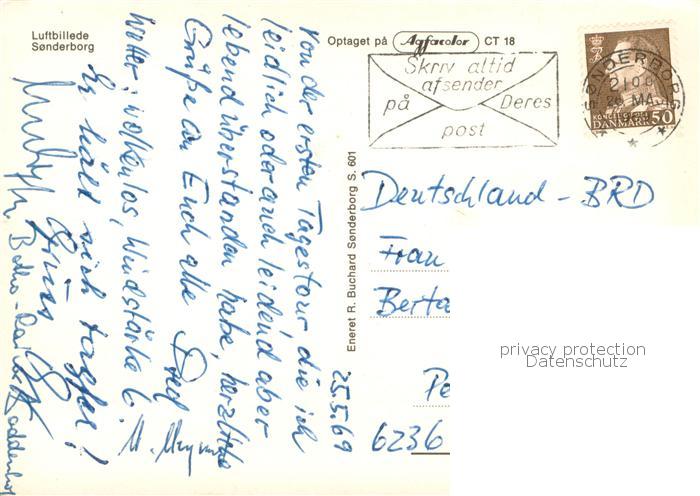 Luftbillede
Sønderborg
Optaget på Agfacolor CT 18
Skriv altid
afsender
på Deres
post
SØNDERBORG
2100
26 MA
KONGELIG POST
DANMARK 50
Eneret R. Buchard Sønderborg S. 601
25.5.69
von der ersten Tagestour die ich
leidlich oder auch leidend aber
lebend überstanden habe, herzliche
Grüße an Euch alle
Wetter: wolkenlos, Windstärke 6.
Er hält sich tapfer!
Deutschland - BRD
Frau
Berta
Pe
6236
privacy protection
Datenschutz